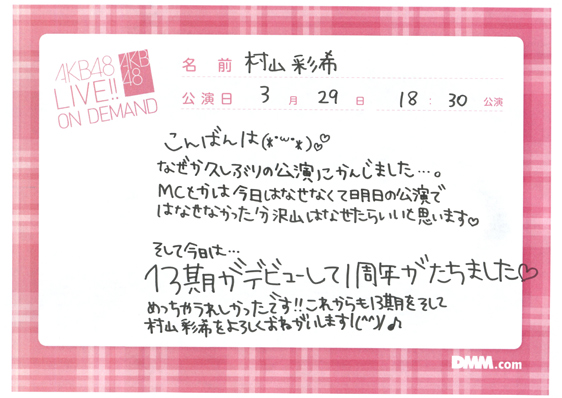 AKB48
LIVE!!
ON DEMAND
AKB
48
名 前 村山 彩希
公演日 3 月 29 日 18 : 30 公演
こんばんは(*･ω･*)♡
なぜか久しぶりの公演にかんじました…。
MCとかは今日はなせなくて明日の公演で
はなせなかった分沢山はなせたらいいと思います♡
そして今日は…
13期がデビューして1周年がたちました♡
めっちゃうれしかったです!!これからも13期をそして
村山彩希をよろしくおねがいします!(^^)/♪
DMM.com